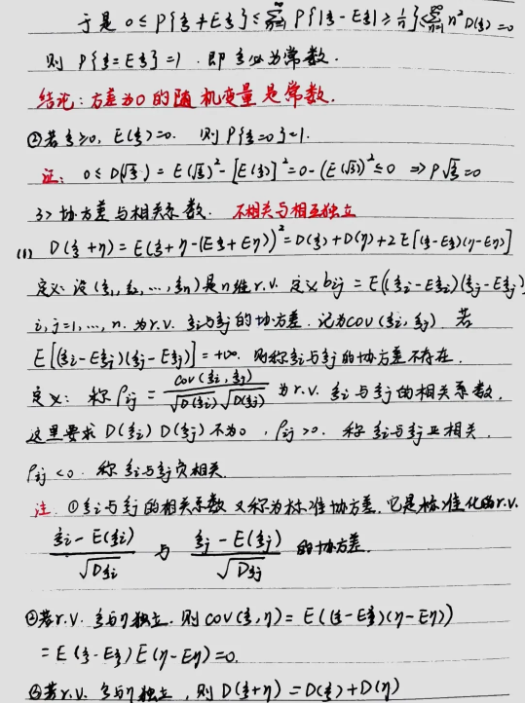 于是 0 ≤ P{ξ ≠ Eξ} ≤ ∑_{n=1}^{∞} P{|ξ - Eξ| ≥ 1/n} ≤ ∑_{n=1}^{∞} n² D(ξ) = 0
则 P{ξ = Eξ} = 1 . 即 ξ 必为常数.
结论: 方差为0的随机变量是常数.
②若 ξ ≥ 0, E(ξ) = 0. 则 P{ξ = 0} = 1.
证: 0 ≤ D(√ξ) = E(√ξ)² - [E(√ξ)]² = 0 - (E(√ξ))² ≤ 0 ⇒ P √ξ = 0
3> 协方差与相关系数. 不相关与相互独立
(1) D(ξ + η) = E(ξ + η - (Eξ + Eη))² = D(ξ) + D(η) + 2E[(ξ - Eξ)(η - Eη)]
定义: 设 (ξ₁, ξ₂, ..., ξn) 是 n 维 r.v. 定义 bij = E((ξi - Eξi)(ξj - Eξj)
i, j = 1, ..., n. 为 r.v. ξi 与 ξj 的协方差. 记为 cov(ξi, ξj) 若
E[(ξi - Eξi)(ξj - Eξj)] = +∞. 则称 ξi 与 ξj 的协方差不存在.
定义: 称 ρij = cov(ξi, ξj) / √D(ξi) √D(ξj) 为 r.v. ξi 与 ξj 的相关系数,
这里要求 D(ξi) D(ξj) 不为0 , ρij > 0. 称 ξi 与 ξj 正相关,
ρij < 0. 称 ξi 与 ξj 负相关.
注. ①ξi 与 ξj 的相关系数 又称为标准协方差, 它是标准化的 r.v.
ξi - E(ξi) / √Dξi 与 ξj - E(ξj) / √Dξj 的协方差.
②若 r.v. ξ 与 η 独立. 则 cov(ξ, η) = E((ξ - Eξ)(η - Eη))
= E(ξ - Eξ) E(η - Eη) = 0.
③若 r.v. ξ 与 η 独立 , 则 D(ξ + η) = D(ξ) + D(η)